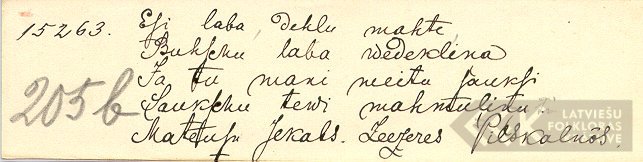 15263. Esi laba dehlu mahte,
Buhschu laba wedeklina
Ja tu mani meitu sauksi
205b
Saukschu tewi mahmulinu
Matıusu Jekabs. Leezeres Pilskalnōs.
LATVIEŠU
FOLKLORAS